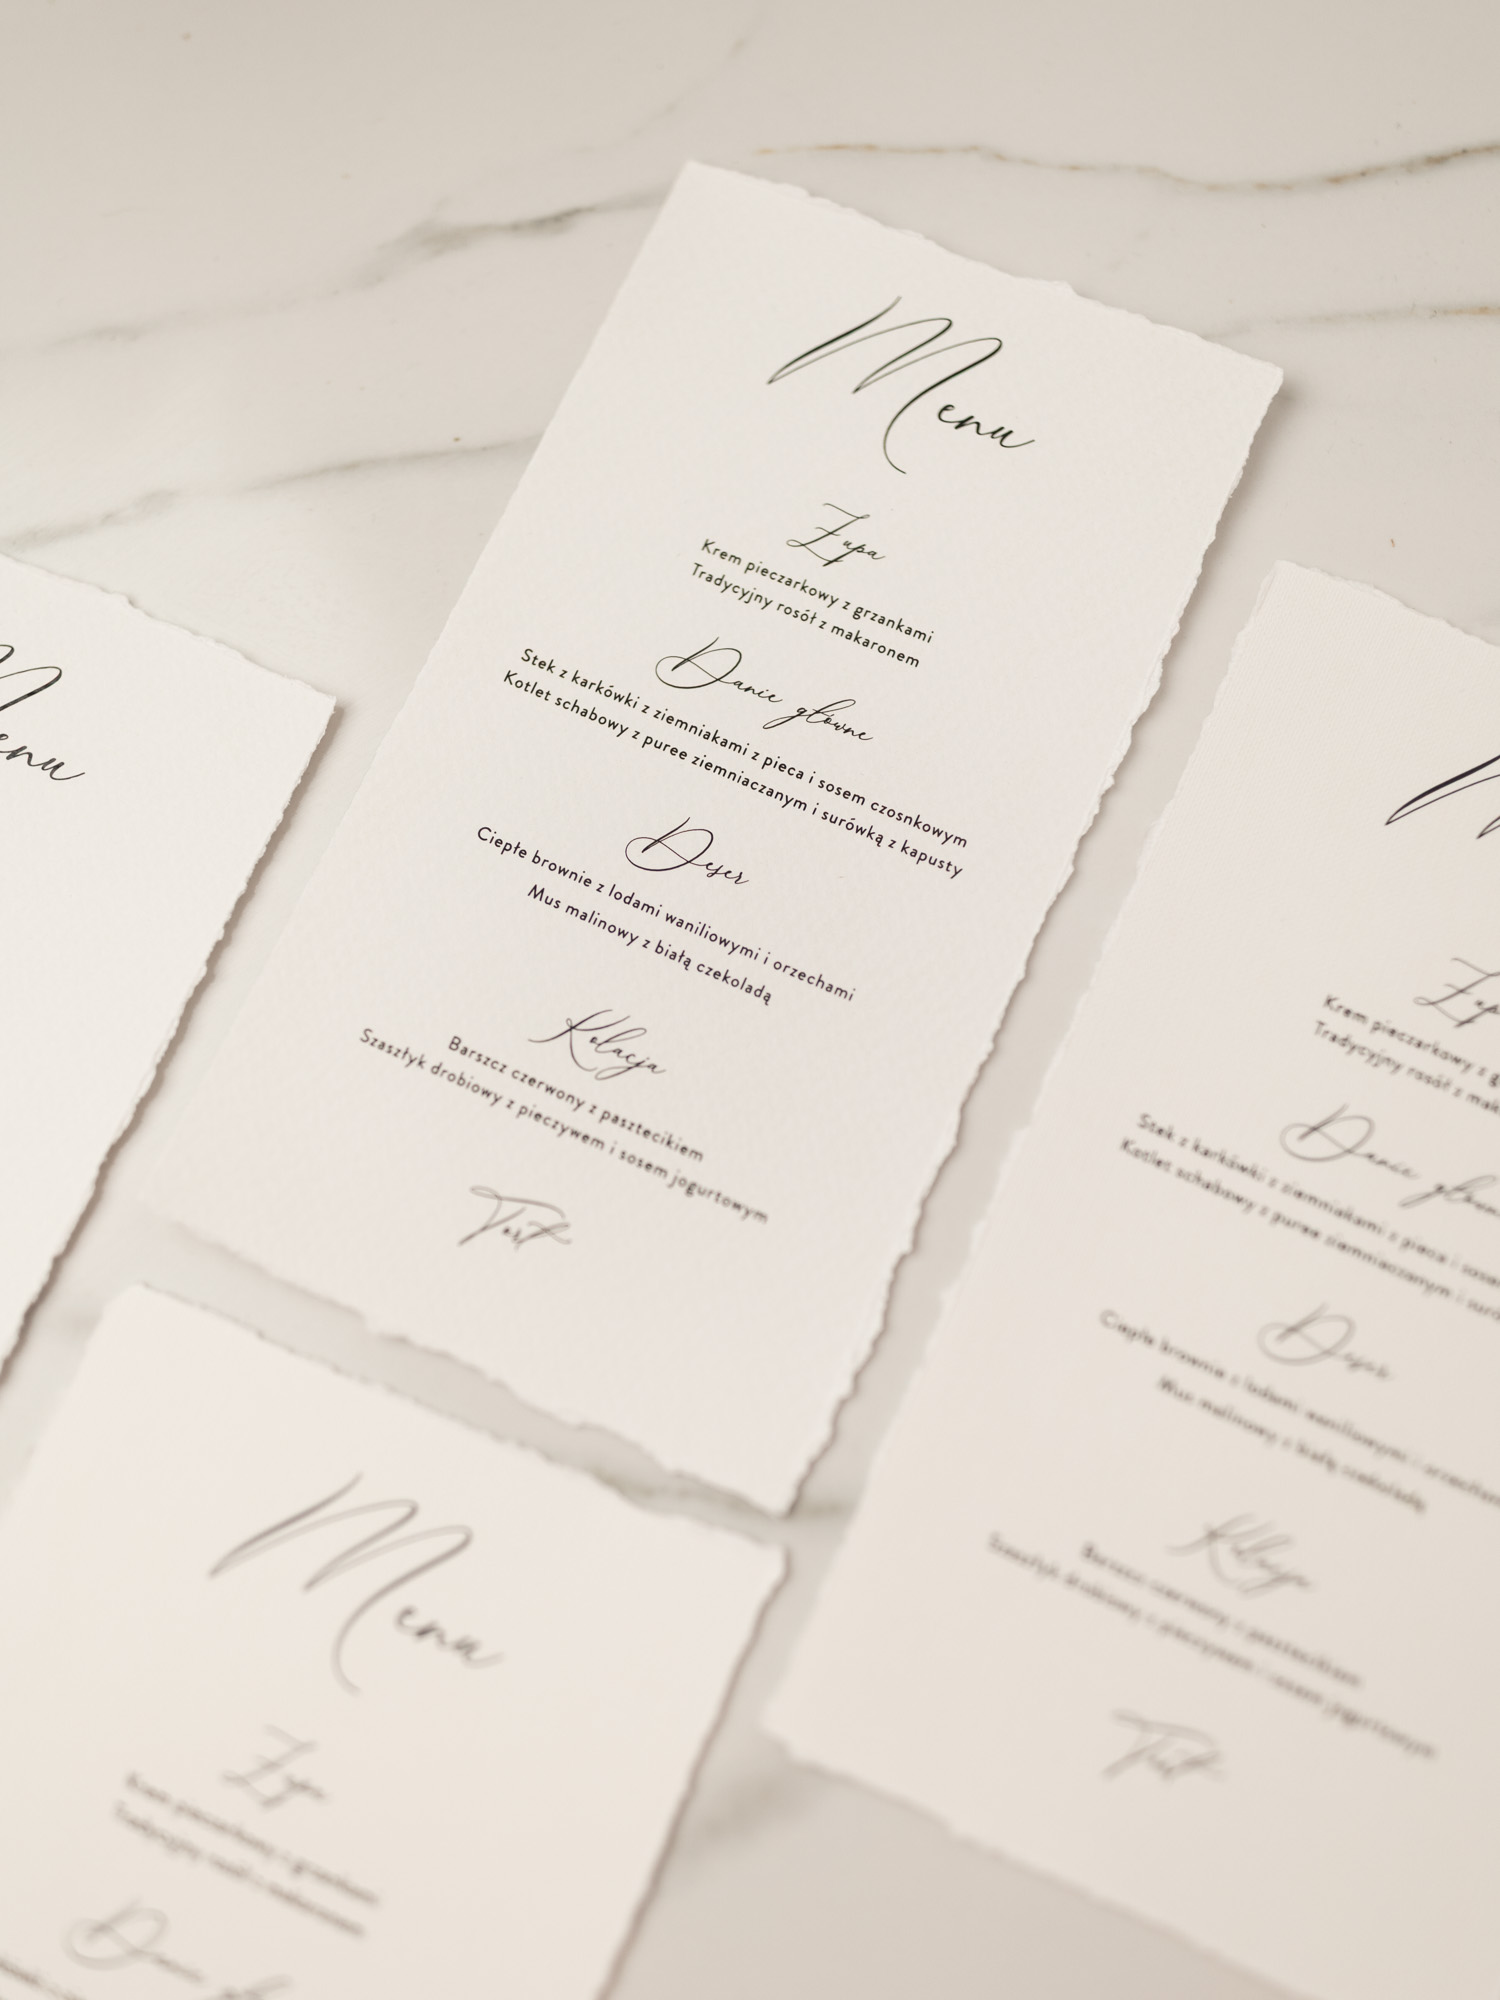 Menu
Zupa
Krem pieczarkowy z grzankami
Tradycyjny rosół z makaronem
Danie główne
Stek z karkówki z ziemniakami z pieca i sosem czosnkowym
Kotlet schabowy z puree ziemniaczanym i surówką z kapusty
Deser
Ciepłe brownie z lodami waniliowymi i orzechami
Mus malinowy z białą czekoladą
Kolacja
Barszcz czerwony z pasztecikiem
Szaszłyk drobiowy z pieczywem i sosem jogurtowym
Tort
Menu
Zupa
Krem pieczarkowy z
Tradycyjny rosół z
Danie
Stek z karkówki z ziemniakami z pieca i
Kotlet schabowy z puree ziemniaczanym i
Deser
Ciepłe brownie z lodami waniliowymi i
Mus malinowy z białą czekoladą
Kolacja
Barszcz czerwony z pasztecikiem
Szaszłyk drobiowy z pieczywem i sosem jogurtowym
Tort
Menu
Zupa
Krem pieczarkowy z grzankami
Tradycyjny rosół z makaronem
Danie